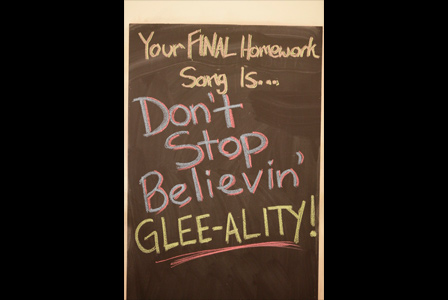 Your FINAL Homework
Song Is...
Don't
Stop
Believin'
GLEE-ALITY!